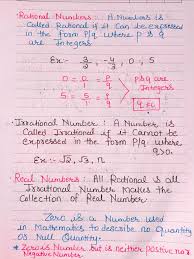 Rational Numbers: A Numbers is
Called Rational if it Can be Expressed
in the form P/q where P &
q are Integers
Ex:- 3/2, -4/3, 0, 5
0 = 0/1 = P/q
5 = 5/1 = P/q
P & q are
Integers
q ≠ 0
Irrational Number: A Number is
Called Irrational if it Cannot be
expressed in the form P/q where
q>0.
Ex:- √2, √3, π
Real Numbers: All Rational & all
Irrational Number makes the
Collection of Real Number
Zero is a Number used
in Mathematics to describe no quantity
or Null Quantity.
* Zero is Number but is neither positive nor
Negative Number